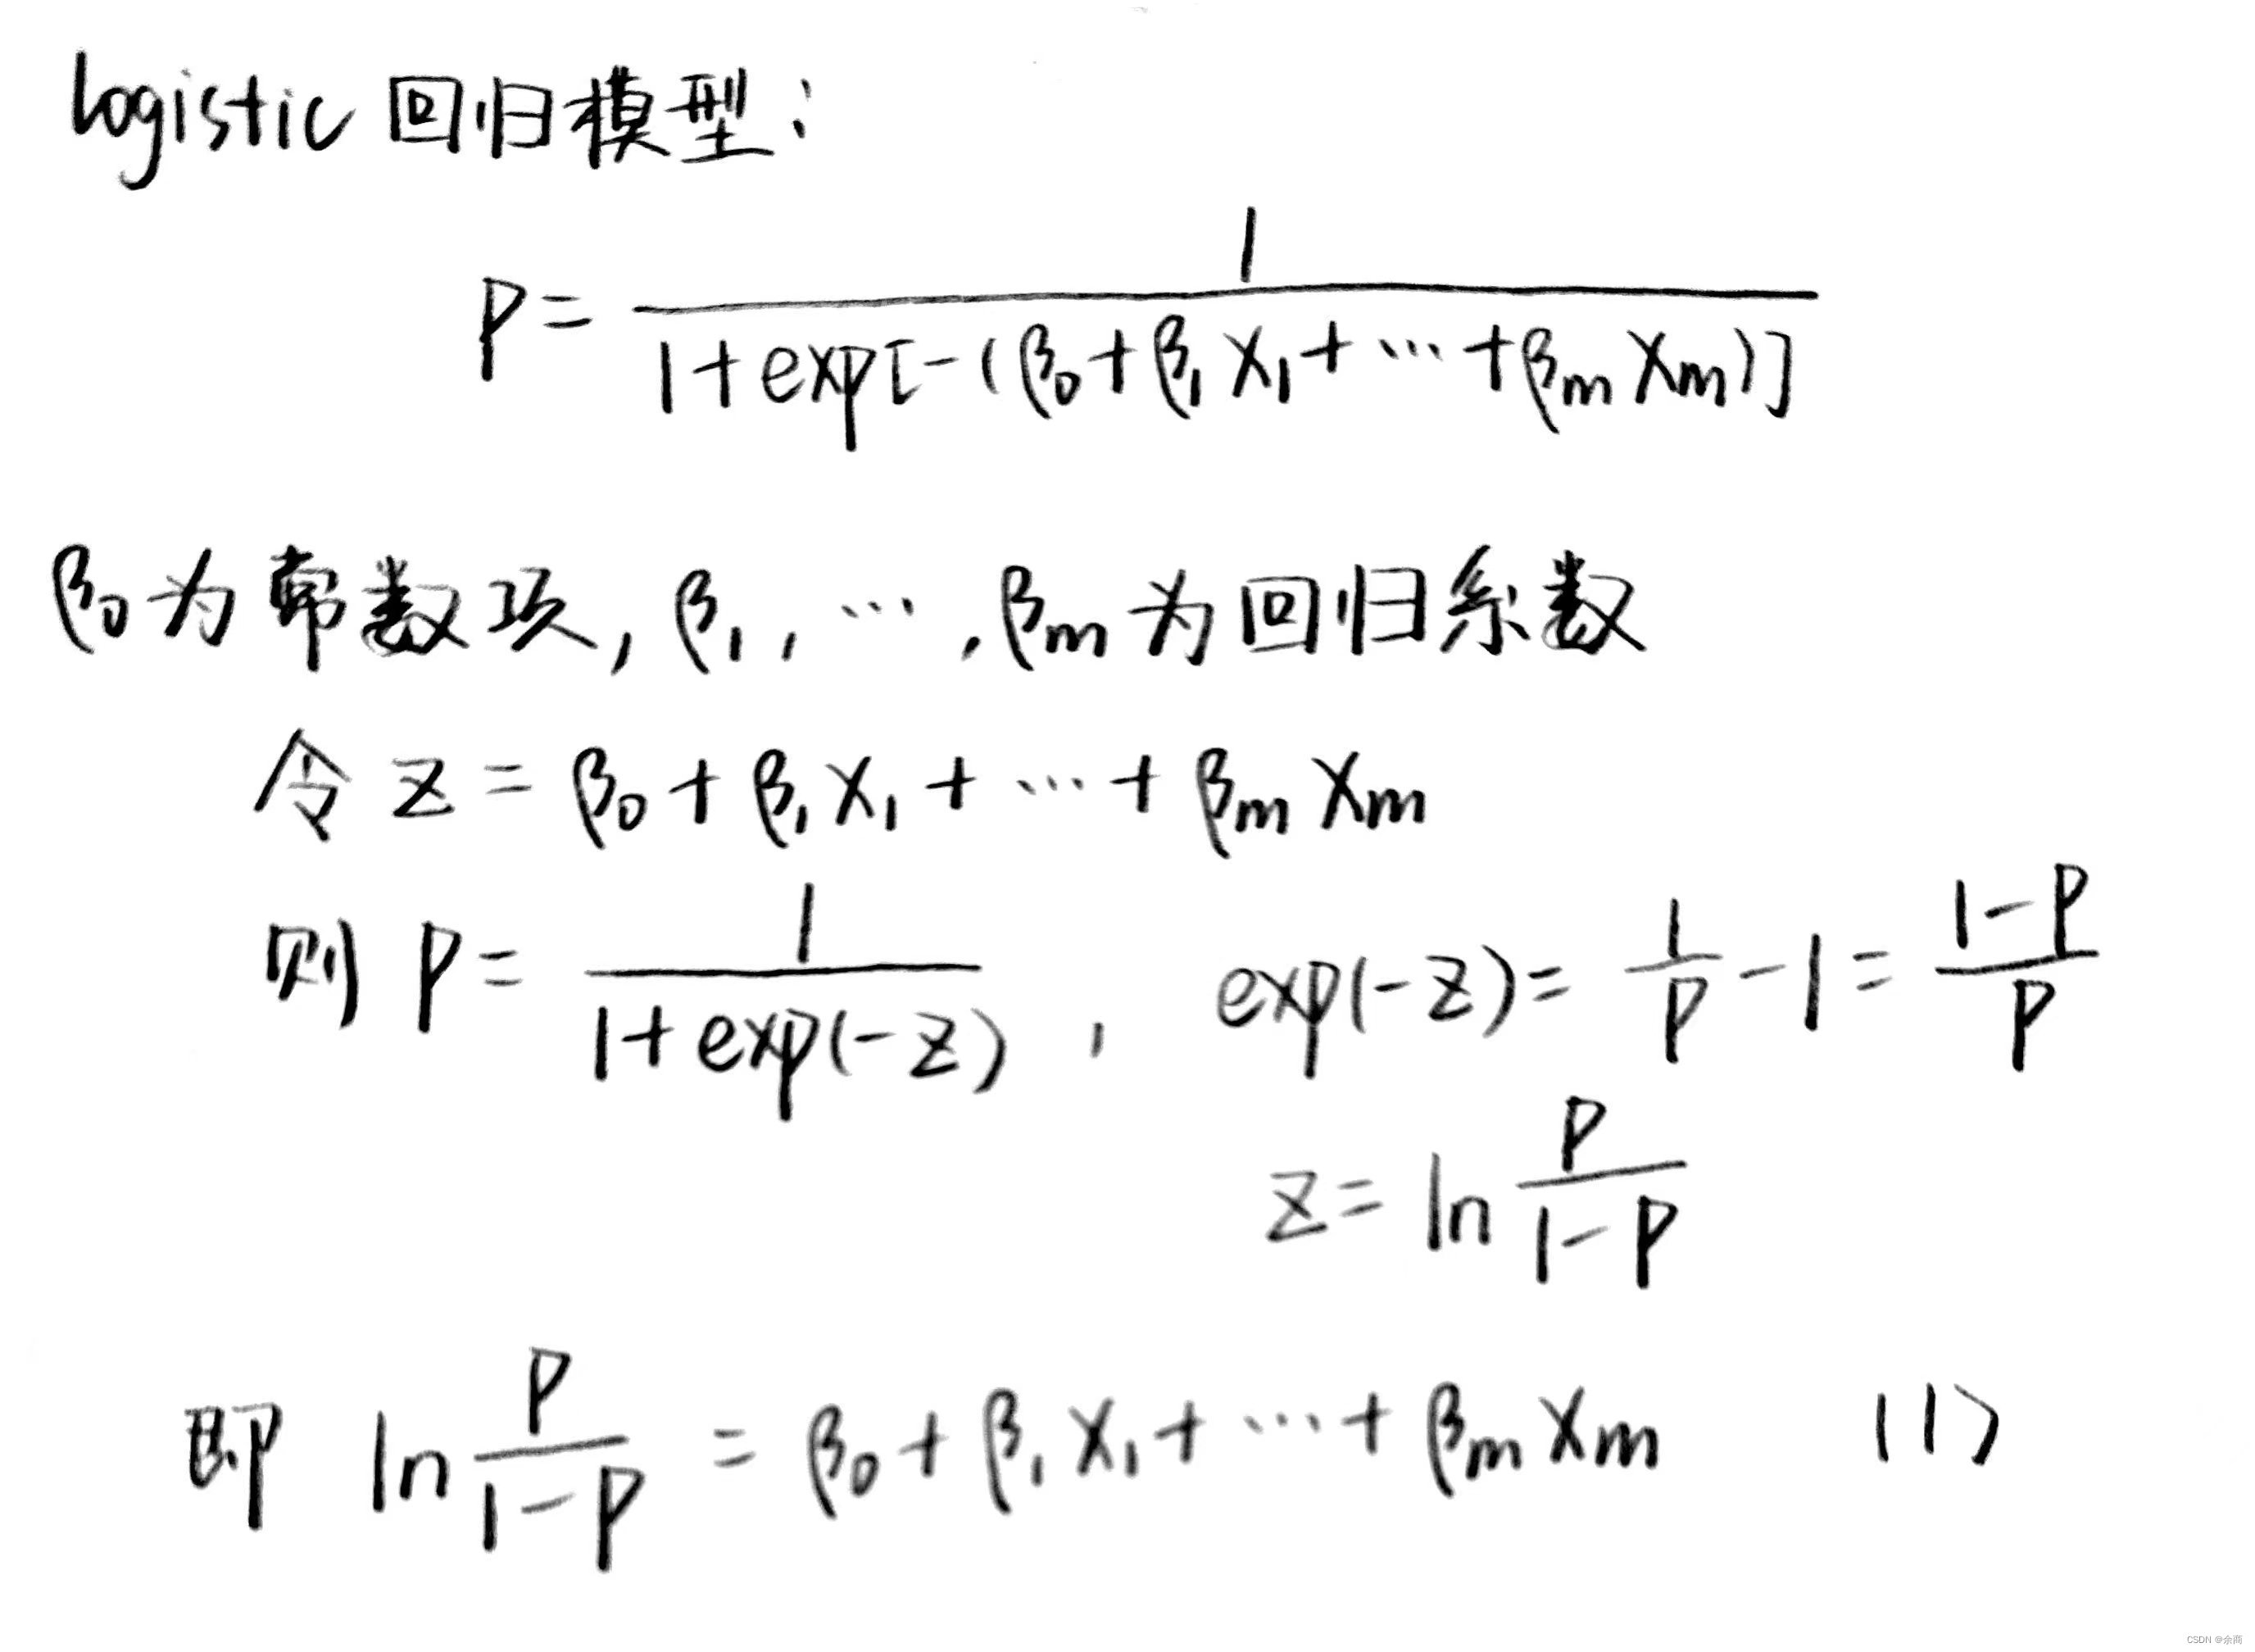 logistic 回归模型：
P = 1 / (1 + exp[-(β₀ + β₁X₁ + ⋯ + βₘXₘ)])
β₀为常数项, β₁, ⋯, βₘ为回归系数
令 z = β₀ + β₁X₁ + ⋯ + βₘXₘ
则 P = 1 / (1 + exp(-z)) , exp(-z) = 1/P - 1 = (1-P)/P
z = ln P/(1-P)
即 ln P/(1-P) = β₀ + β₁X₁ + ⋯ + βₘXₘ (1)
CSDN @余商